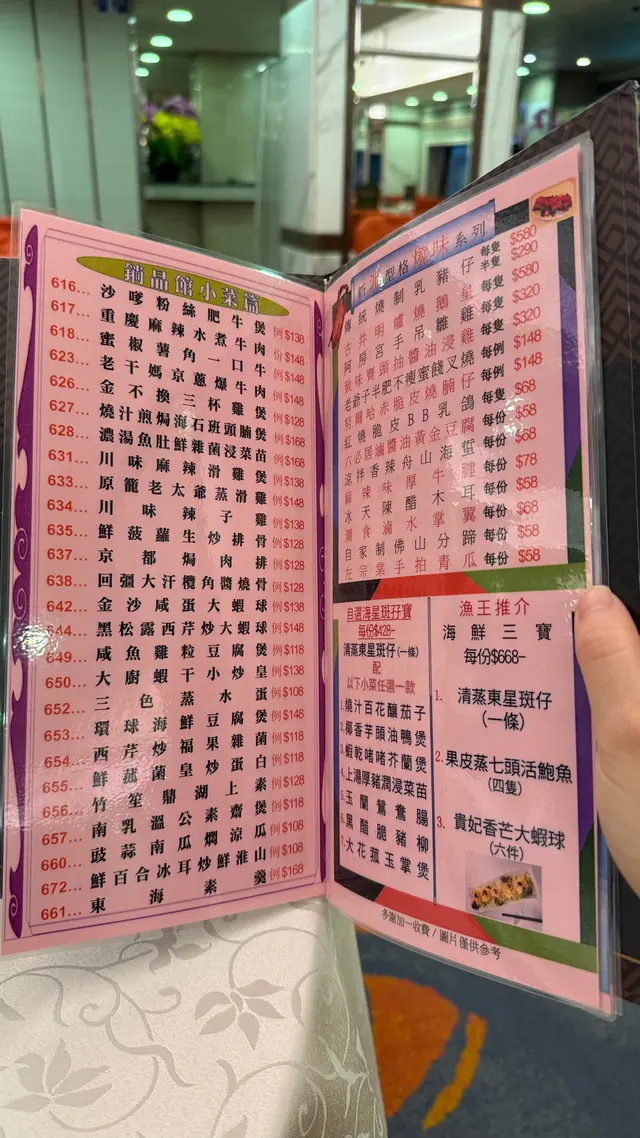 品館小菜篇
616... 沙嗲粉絲肥牛煲 例$138
617... 重慶麻辣水煮牛肉 份$148
618... 蜜椒薯角一口牛 例$148
623... 老干媽京蔥爆牛肉 例$148
626... 金不換三杯雞煲 例$128
627... 燒汁煎焗海石班頭腩煲 例$168
628... 濃湯魚肚鮮雜菌浸菜苗 例$168
631... 川味麻辣滑雞煲 例$138
633... 原籠老太爺蒸滑雞 例$148
634... 川味辣子雞 例$138
635... 鮮菠蘿生炒排骨 例$128
637... 京都焗肉排 例$128
638... 回彊大汗欖角醬燒骨 例$128
642... 金沙咸蛋大蝦球 例$138
644... 黑松露西芹炒大蝦球 例$148
649... 咸魚雞粒豆腐煲 例$118
650... 大廚蝦干小炒皇 例$138
652... 三色蒸水蛋 例$108
653... 環球海鮮豆腐煲 例$148
654... 西芹炒福果雜菌 例$118
655... 鮮菰菌皇炒蛋白 例$118
656... 竹笙鼎湖上素 例$128
657... 南乳溫公素齋煲 例$118
660... 豉蒜南瓜燜涼瓜 例$108
672... 鮮百合冰耳炒鮮淮山 例$108
661... 東海素羹 例$168
新派型格燒味系列
傳統燒制乳豬仔 每隻 $580
半隻 $290
古井明爐燒鵝皇 每隻 $580
阿房宮手吊雛雞 每隻 $320
秘味薺頭抽醬油浸雞 每隻 $320
老爺子半肥不瘦蜜餞叉燒 每例 $148
哈赤脆皮燒腩仔 每例 $148
紅燒脆皮BB乳鴿 每隻 $68
六必居滷醬油黃金豆腐 每份 $58
涼拌香辣舟山海蜇 每份 $68
麻辣味厚牛 每份 $78
冰天陳醋木耳 每份 $58
潮食滷水掌翼 每份 $68
自家制佛山分蹄 每份 $68
左宗棠手拍青瓜 每份 $58
自選海星斑孖寶
每份$428-
清蒸東星斑仔(一條)
配
以下小菜任選一款
1.燒汁百花釀茄子
2.椰香芋頭油鴨煲
3.蝦乾啫啫芥蘭煲
4.上湯厚豬潤浸菜苗
5.玉蘭鴛鴦腸
6.黑醋脆豬柳
7.大花菰玉掌煲
漁王推介
海鮮三寶
每份$668-
1. 清蒸東星斑仔
(一條)
2. 果皮蒸七頭活鮑魚
(四隻)
3. 貴妃香芒大蝦球
(六件)
多謝加一收費 / 圖片僅供參考